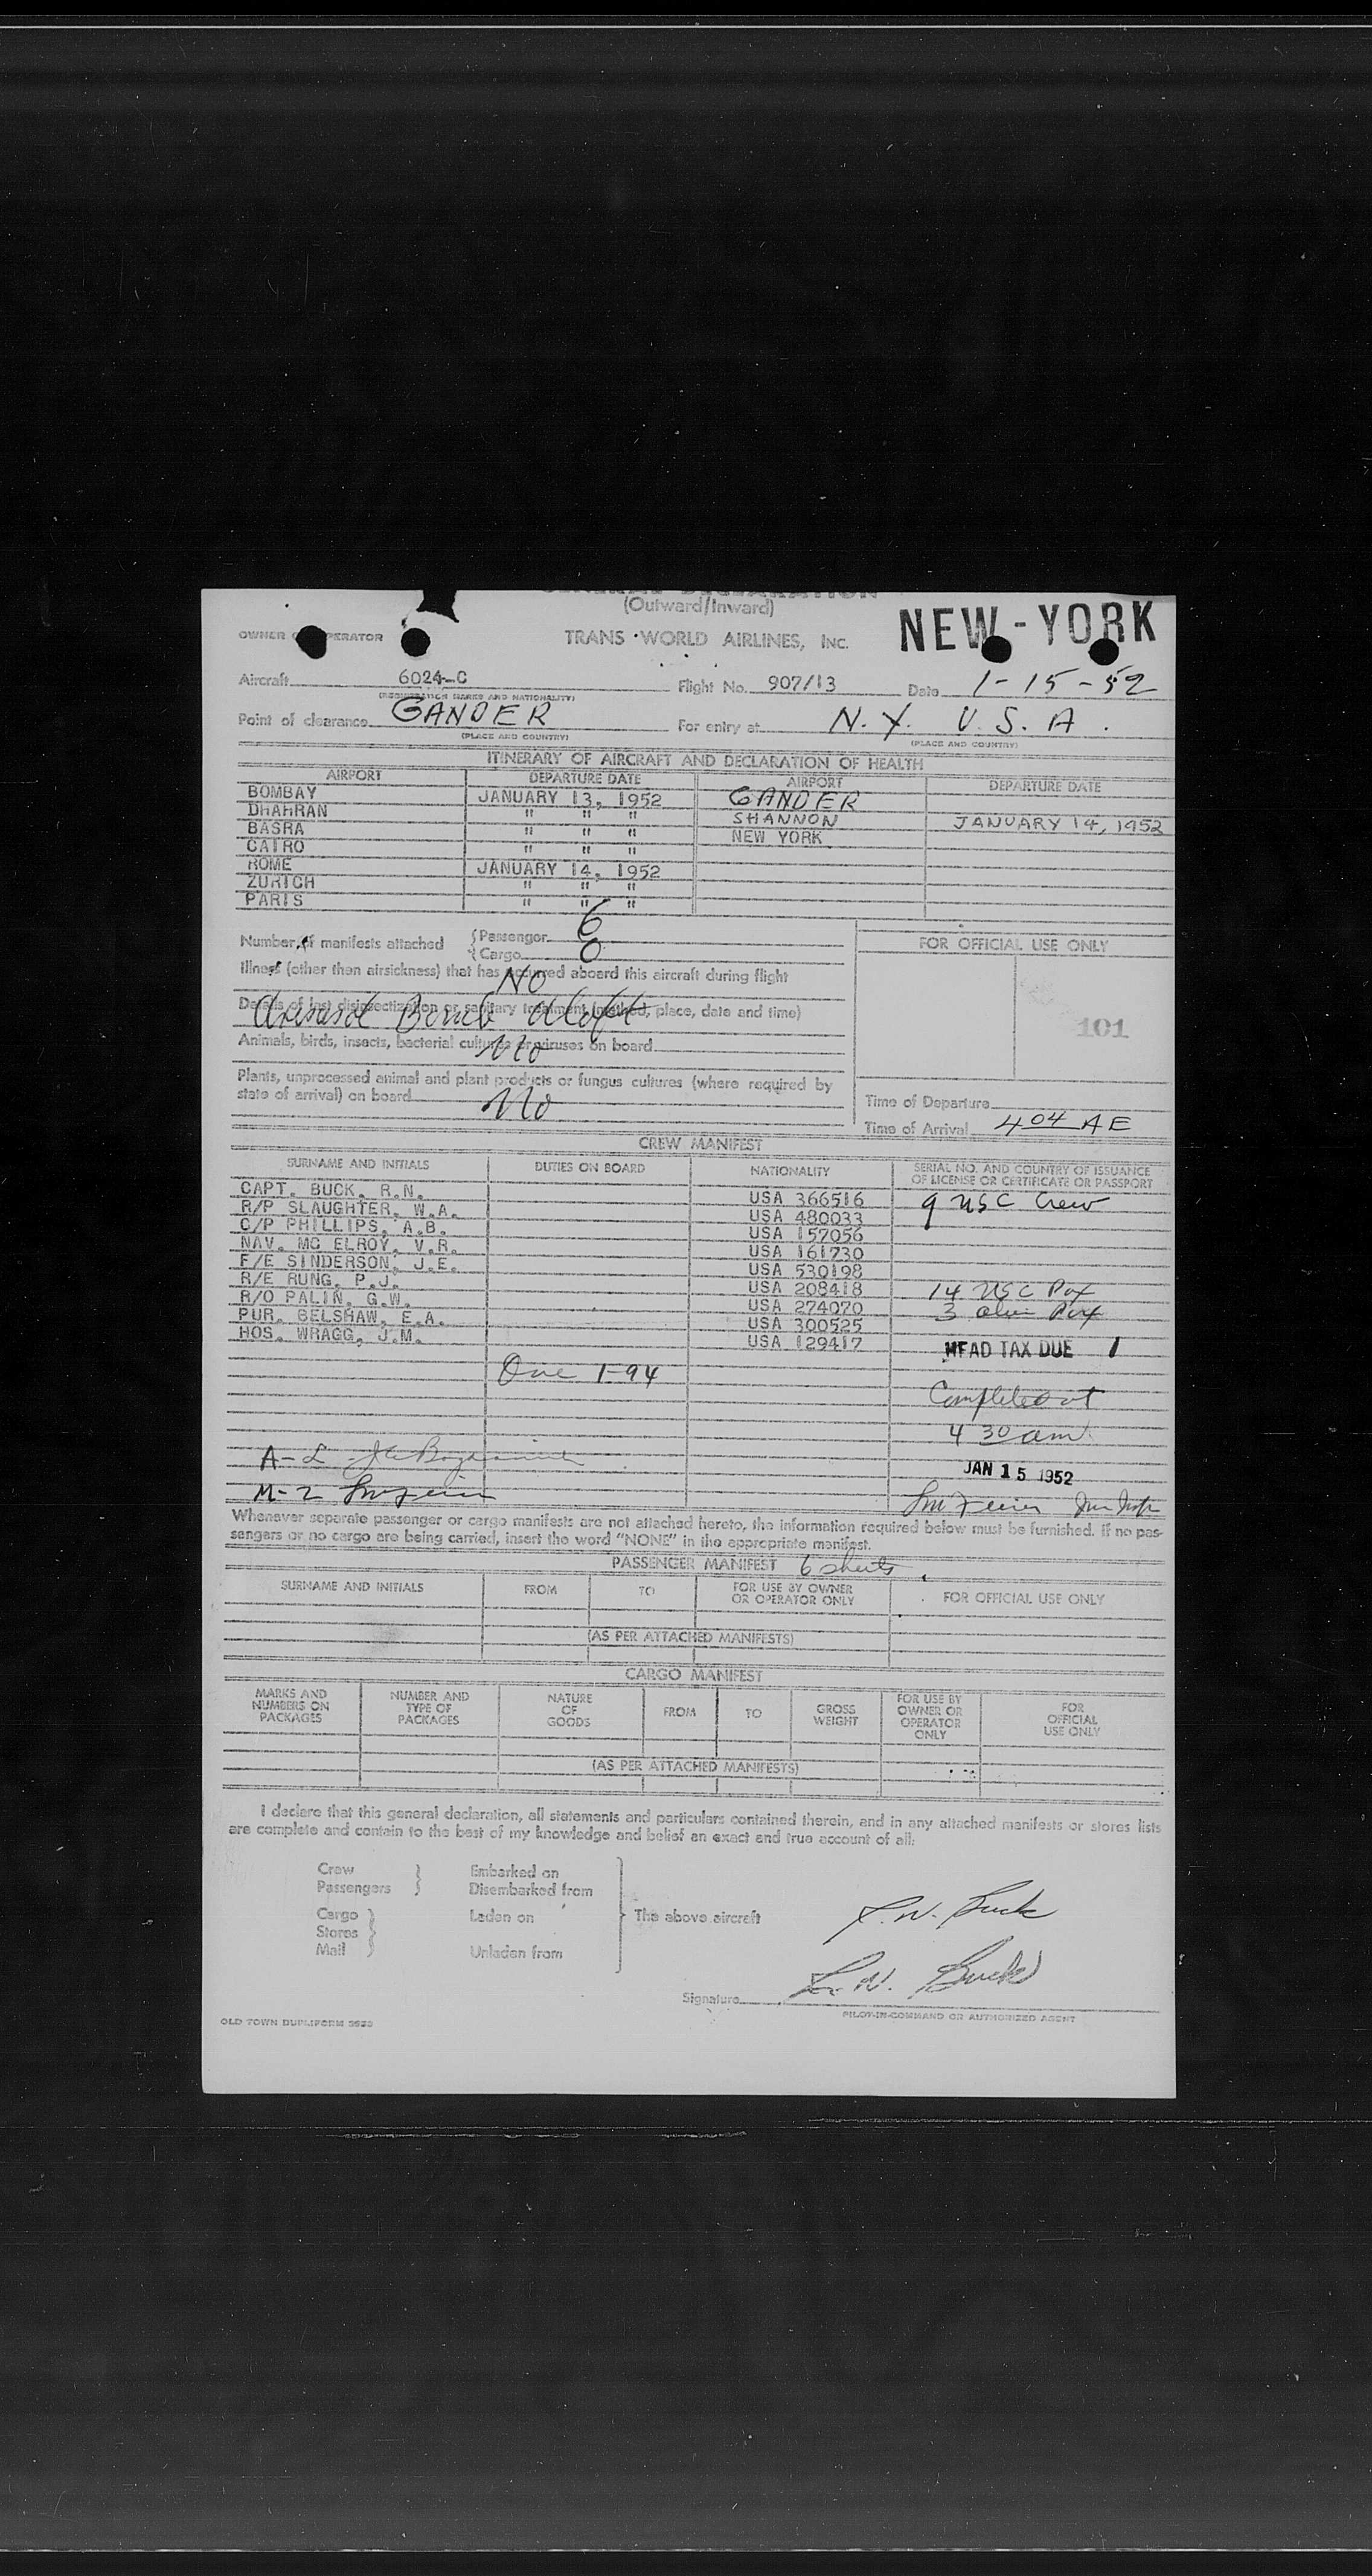 GENERAL DECLARATION
(Outward/Inward)
NEW-YORK
OWNER O PERATOR TRANS WORLD AIRLINES, INC.
Aircraft 6024-C Flight No. 907/13 Date 1-15-52
(REGISTRATION MARKS AND NATIONALITY)
Point of clearance GANDER For entry at N.Y. U.S.A.
(PLACE AND COUNTRY) (PLACE AND COUNTRY)
ITINERARY OF AIRCRAFT AND DECLARATION OF HEALTH
AIRPORT DEPARTURE DATE AIRPORT DEPARTURE DATE
BOMBAY JANUARY 13, 1952 GANDER
DHAHRAN " " " SHANNON JANUARY 14, 1952
BASRA " " " NEW YORK
CAIRO " " "
ROME JANUARY 14, 1952
ZURICH " " "
PARIS " " "
Number of manifests attached { Passenger 6
{ Cargo 0
FOR OFFICIAL USE ONLY
Illness (other than airsickness) that has occurred aboard this aircraft during flight
NO
Details of last disinsectization or sanitary treatment (method, place, date and time)
Bomb aloft
101
Animals, birds, insects, bacterial cultures or viruses on board No
Plants, unprocessed animal and plant products or fungus cultures (where required by
state of arrival) on board No
Time of Departure
Time of Arrival 4 04 AE
CREW MANIFEST
SURNAME AND INITIALS DUTIES ON BOARD NATIONALITY SERIAL NO. AND COUNTRY OF ISSUANCE
OF LICENSE OR CERTIFICATE OR PASSPORT
CAPT. BUCK, R.N. USA 366516 9 USC Crew
R/P SLAUGHTER, W.A. USA 480033
C/P PHILLIPS, A.B. USA 157056
NAV. MC ELROY, V.R. USA 161730
F/E SINDERSON, J.E. USA 530198
R/E RUNG, P.J. USA 208418 14 USC Pax
R/O PALIN, G.W. USA 274070 3 alien Pax
PUR. BELSHAW, E.A. USA 300525
HOS. WRAGG, J.M. USA 129417 HEAD TAX DUE 1
One 1-94
Completed at
4 30 am
A-2
JAN 15 1952
M-2
Whenever separate passenger or cargo manifests are not attached hereto, the information required below must be furnished. If no pas-
sengers or no cargo are being carried, insert the word "NONE" in the appropriate manifest.
PASSENGER MANIFEST 6 sheets
SURNAME AND INITIALS FROM TO FOR USE BY OWNER
OR OPERATOR ONLY FOR OFFICIAL USE ONLY
(AS PER ATTACHED MANIFESTS)
CARGO MANIFEST
MARKS AND
NUMBERS ON
PACKAGES NUMBER AND
TYPE OF
PACKAGES NATURE
OF
GOODS FROM TO GROSS
WEIGHT FOR USE BY
OWNER OR
OPERATOR
ONLY FOR
OFFICIAL
USE ONLY
(AS PER ATTACHED MANIFESTS)
I declare that this general declaration, all statements and particulars contained therein, and in any attached manifests or stores lists
are complete and contain to the best of my knowledge and belief an exact and true account of all:
Crew } Embarked on
Passengers } Disembarked from
Cargo } Laden on } The above aircraft R.N. Buck
Stores }
Mail } Unladen from
Signature R.N. Buck
PILOT-IN-COMMAND OR AUTHORIZED AGENT
OLD TOWN DUPLIFORM